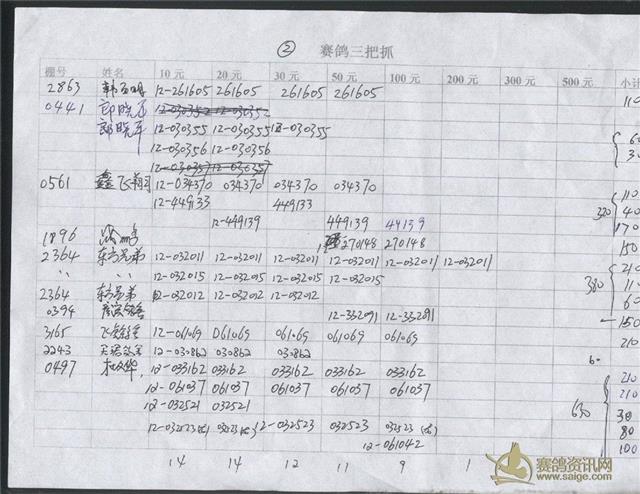 ② 赛鸽三把抓
棚号 姓名 10元 20元 30元 50元 100元 200元 300元 500元 小计
2863 12-261605 261605 261605 261605 110
0441 郎晓军 12-030352 12-030352
郎晓军 12-030355 12-030355 12-030355 60
12-030356 12-030356 3
12-030357 12-030357
0561 鑫飞翔 12-034370 034370 034370 034370 110
12-449133 449133 320 40
12-449139 449139 44139 170
1896 270148 270148 150
2364 东方兄弟 12-032011 12-032011 12-032011 12-032011 12-032011 12-032011
〃 〃 12-032015 12-032015 12-032015 12-032015 380 110
2364 东方兄弟 12-032012 12-032012 12-032012 60
0394 12-332091 12-332091 150
3165 12-061069 061069 061069 061069 061069 210
2243 12-030862 030862 030862 60
0497 12-033162 033162 033162 033162 033162 210
12-061037 061037 061037 061037 061037 210
12-032521 032521 630 30
12-032523 032523 12-032523 032523 032523 80
12-061042 100
14 14 12 11 9 1
赛鸽资讯网
www.saige.com